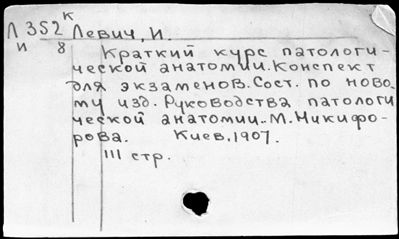 Л 352 к Левич, И.
и 8
Краткий курс патологи-
ческой анатомии. Конспект
для экзаменов. Сост. по ново-
му изд. Руководства патологи
ческой анатомии.. М. Никифо-
рова. Киев, 1907.
III стр.